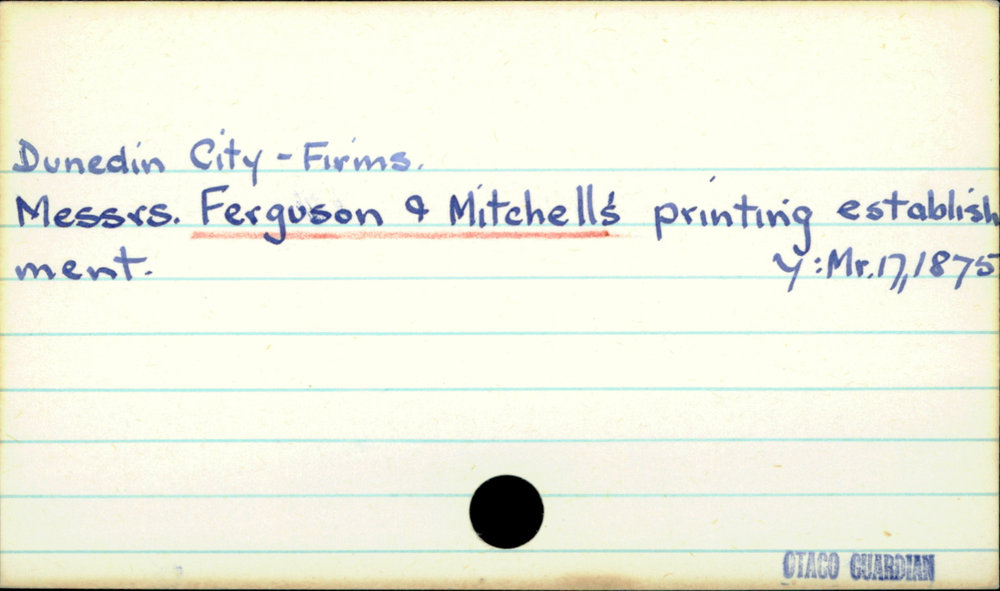 Dunedin City - Firms.
Messrs. Ferguson & Mitchell's printing establish
ment.
Y: Mr. 17, 1875
OTAGO GUARDIAN